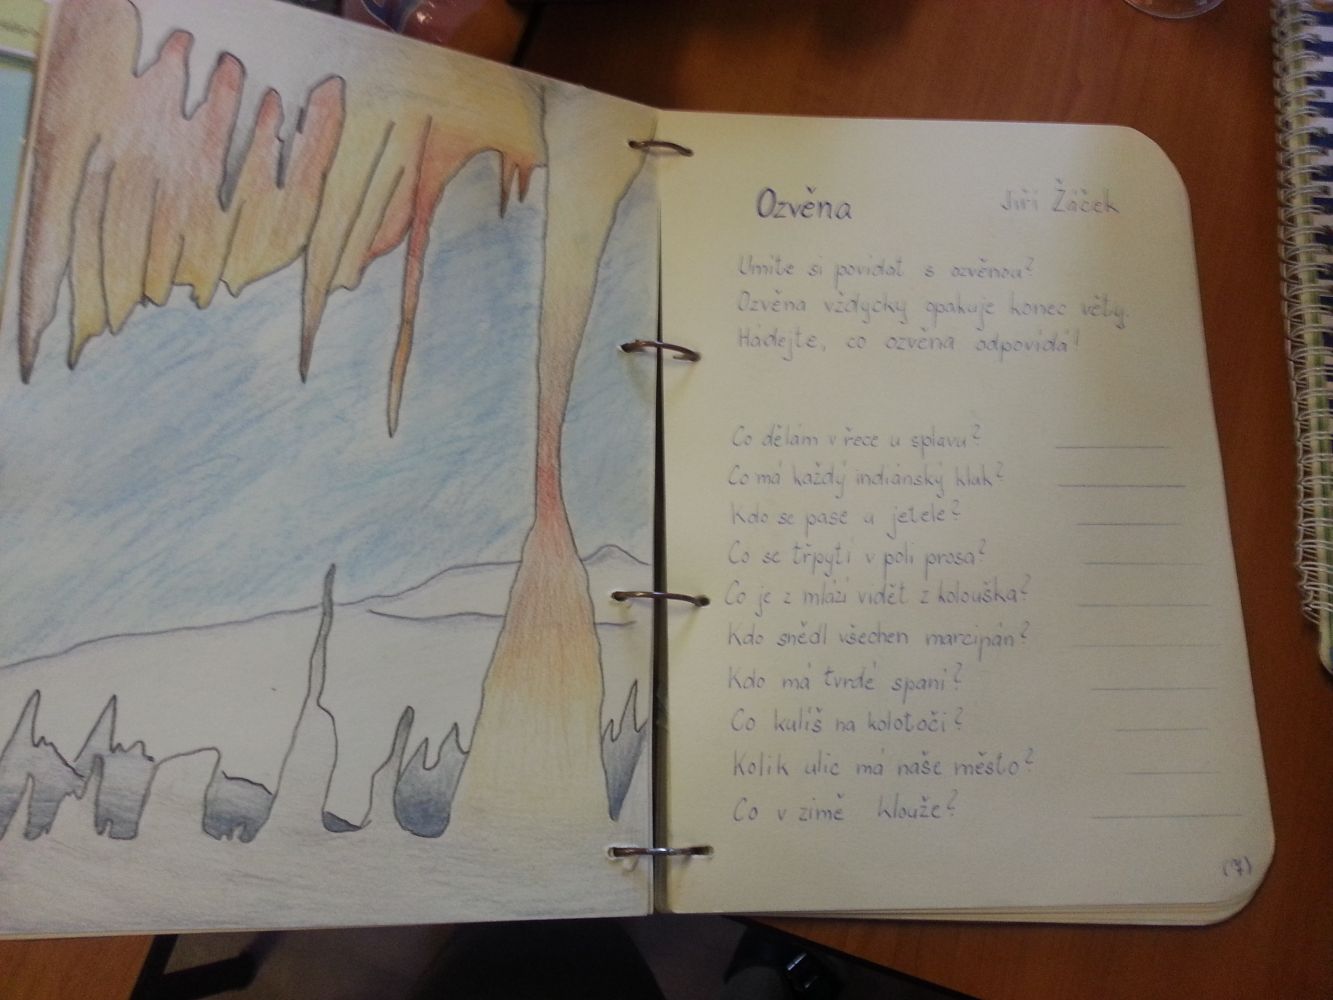 Ozvěna
Jiří Žáček
Umíte si povídat s ozvěnou?
Ozvěna vždycky opakuje konec věty.
Hádejte, co ozvěna odpovídá!
Co dělám v řece u splavu?
Co má každý indiánský kluk?
Kdo se pase u jetele?
Co se třpytí v poli prosa?
Co je z mlází vidět z kolouška?
Kdo snědl všechen marcipán?
Kdo má tvrdé spaní?
Co kulíš na kolotoči?
Kolik ulic má naše město?
Co v zimě klouže?
(7)